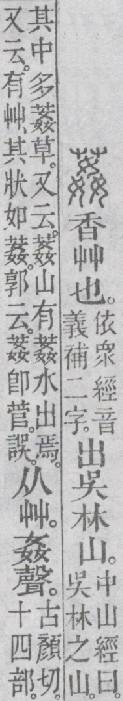 葌香艸也。
依衆經音
義補二字。
出吳林山。
中山經曰。
吳林之山。
其中多葌草。又云。葌山有葌水出焉。
又云。有艸其狀如葌。郭云葌卽菅。誤。
从艸。姦聲。
古顏切。
十四部。